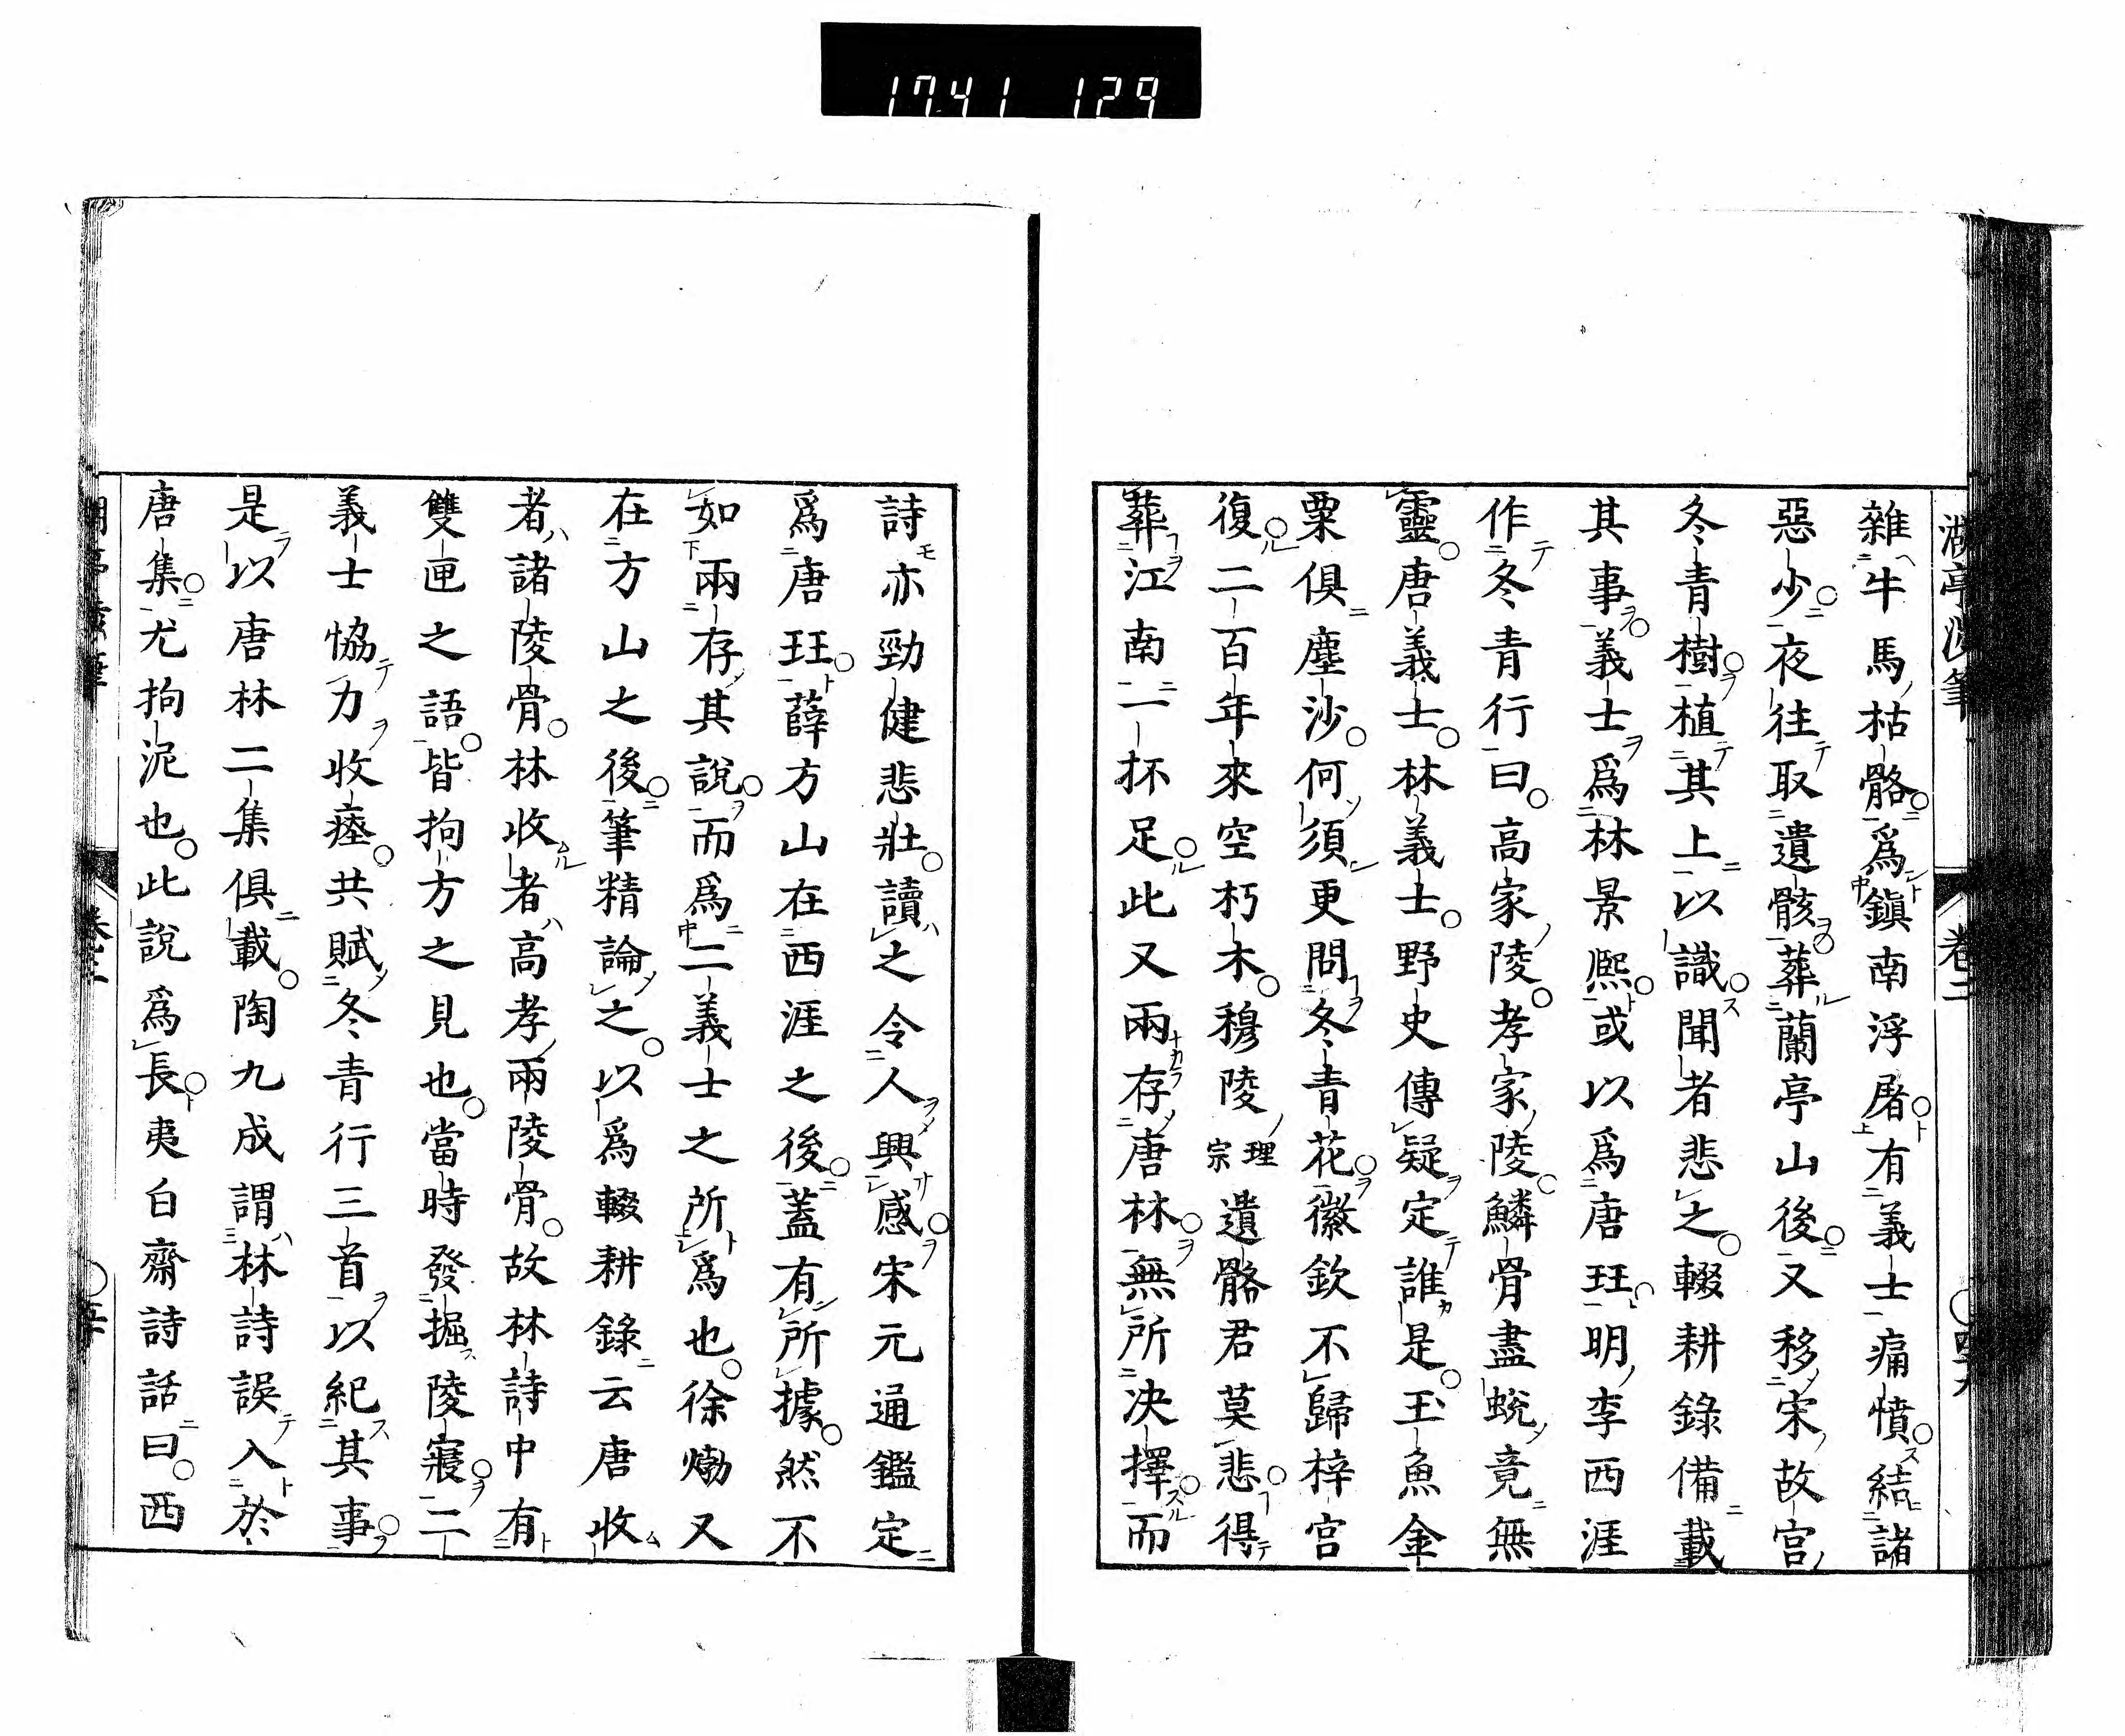 1741 129
湖亭涉筆 卷二 ○四十九
雜牛馬枯骼爲鎮南浮屠有義士痛憤結諸
惡少夜往取遺骸葬蘭亭山後又移宋故宮
冬青樹植其上以識聞者悲之輟耕錄備載
其事義士爲林景熈或以爲唐珏明李西涯
作冬青行曰高家陵孝家陵鱗骨盡蛻竟無
靈唐義士林義士野史傳疑定誰是玉魚金
粟俱塵沙何須更問冬青花徽欽不歸梓宮
復二百年來空朽木穆陵理宗遺骼君莫悲得
葬江南一抔足此又兩存唐林無所決擇而
詩亦勁健悲壯讀之令人興感宋元通鑑定
爲唐珏薛方山在西涯之後蓋有所據然不
如兩存其說而爲二義士之所爲也徐㷿又
在方山之後筆精論之以爲輟耕錄云唐收
者諸陵骨林收者高孝兩陵骨故林詩中有
雙匣之語皆拘方之見也當時發掘陵寢二
義士恊力收瘞共賦冬青行三首以紀其事
是以唐林二集俱載陶九成謂林詩誤入於
唐集尤拘泥也此說爲長夷白齋詩話曰西